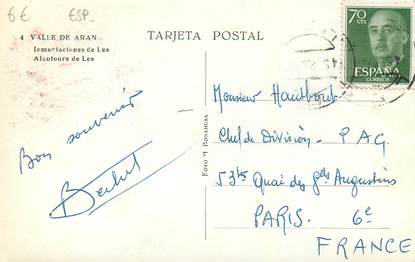 6€ ESP.
4 VALLE DE ARAN
Inmediaciones de Les
Alentours de Les
TARJETA POSTAL
70 CTS
ESPAÑA
CORREOS
Bon souvenir
FOTO M. BONANUSA
Monsieur
Chef de Division - P.A.G.
53 bis Quai des Gds Augustins
PARIS. 6e
FRANCE